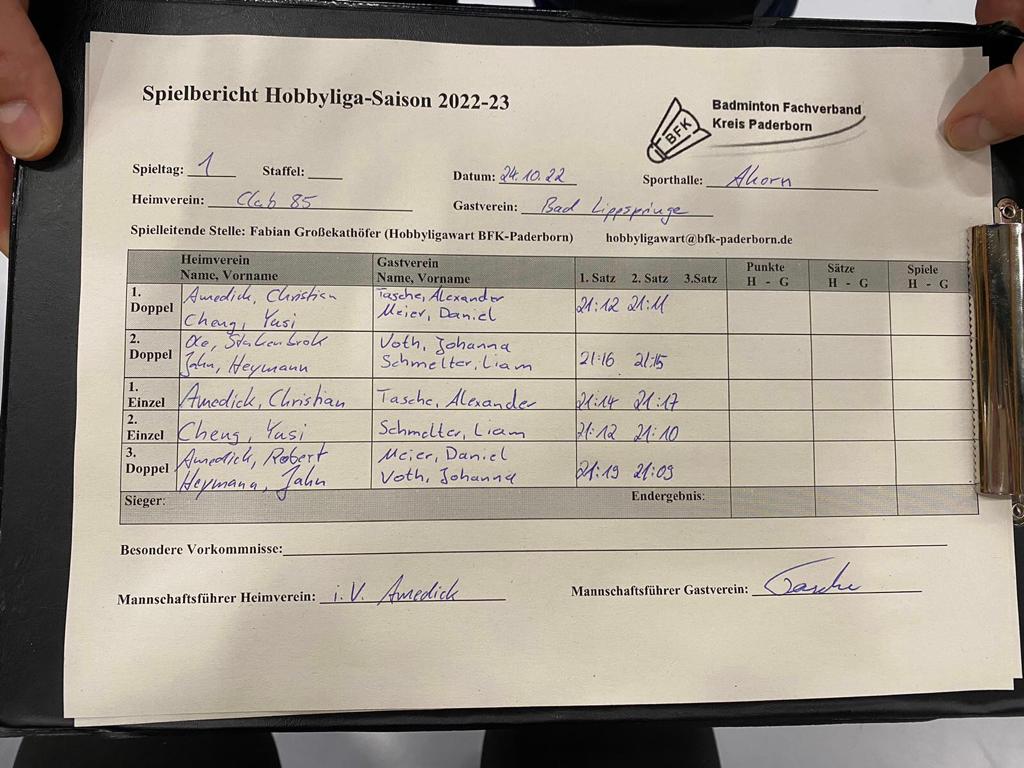 Spielbericht Hobbyliga-Saison 2022-23
BFK
Badminton Fachverband
Kreis Paderborn
Spieltag: 1 Staffel: Datum: 24.10.22 Sporthalle: Ahorn
Heimverein: Club 85 Gastverein: Bad Lippspringe
Spielleitende Stelle: Fabian Großekathöfer (Hobbyligawart BFK-Paderborn) hobbyligawart@bfk-paderborn.de
Heimverein Gastverein Punkte Sätze Spiele
Name, Vorname Name, Vorname 1. Satz 2. Satz 3.Satz H - G H - G H - G
1. Amedick, Christian Tasche, Alexander 21:12 21:11
Doppel Cheng, Yusi Meier, Daniel
2. Voth, Johanna
Doppel Jahn, Heymann Schmelter, Liam 21:16 21:15
1.
Einzel Amedick, Christian Tasche, Alexander 21:14 21:17
2.
Einzel Cheng, Yusi Schmelter, Liam 21:12 21:10
3. Amedick, Robert Meier, Daniel
Doppel Heymann, Jahn Voth, Johanna 21:19 21:09
Sieger: Endergebnis:
Besondere Vorkommnisse:
Mannschaftsführer Heimverein: i.V. Amedick Mannschaftsführer Gastverein: Tasche